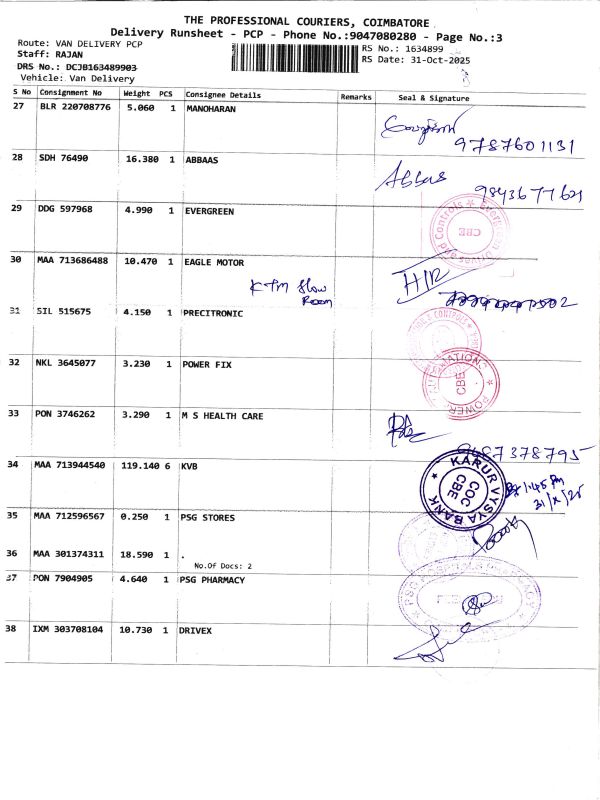 THE PROFESSIONAL COURIERS, COIMBATORE
Delivery Runsheet - PCP - Phone No.:9047080280 - Page No.:3
Route: VAN DELIVERY PCP
RS No.: 1634899
Staff: RAJAN
RS Date: 31-Oct-2025
DRS No.: DCJB163489903
Vehicle: Van Delivery
S No Consignment No Weight PCS Consignee Details Remarks Seal & Signature
27 BLR 220708776 5.060 1 MANOHARAN
9787601131
28 SDH 76490 16.380 1 ABBAAS
Abbas
9843677621
29 DDG 597968 4.990 1 EVERGREEN
Evergreen Drives and Controls CBE
30 MAA 713686488 10.470 1 EAGLE MOTOR
KTM Show
Room
H/R
31 SIL 515675 4.150 1 PRECITRONIC
32 NKL 3645077 3.230 1 POWER FIX
CBE
POWER
33 PON 3746262 3.290 1 M S HEALTH CARE
9687378795
34 MAA 713944540 119.140 6 KVB
KARUR VYSYA BANK
COC
CBE
1.45 Pm
31/X/25
35 MAA 712596567 0.250 1 PSG STORES
36 MAA 301374311 18.590 1 .
No.Of Docs: 2
37 PON 7904905 4.640 1 PSG PHARMACY
38 IXM 303708104 10.730 1 DRIVEX